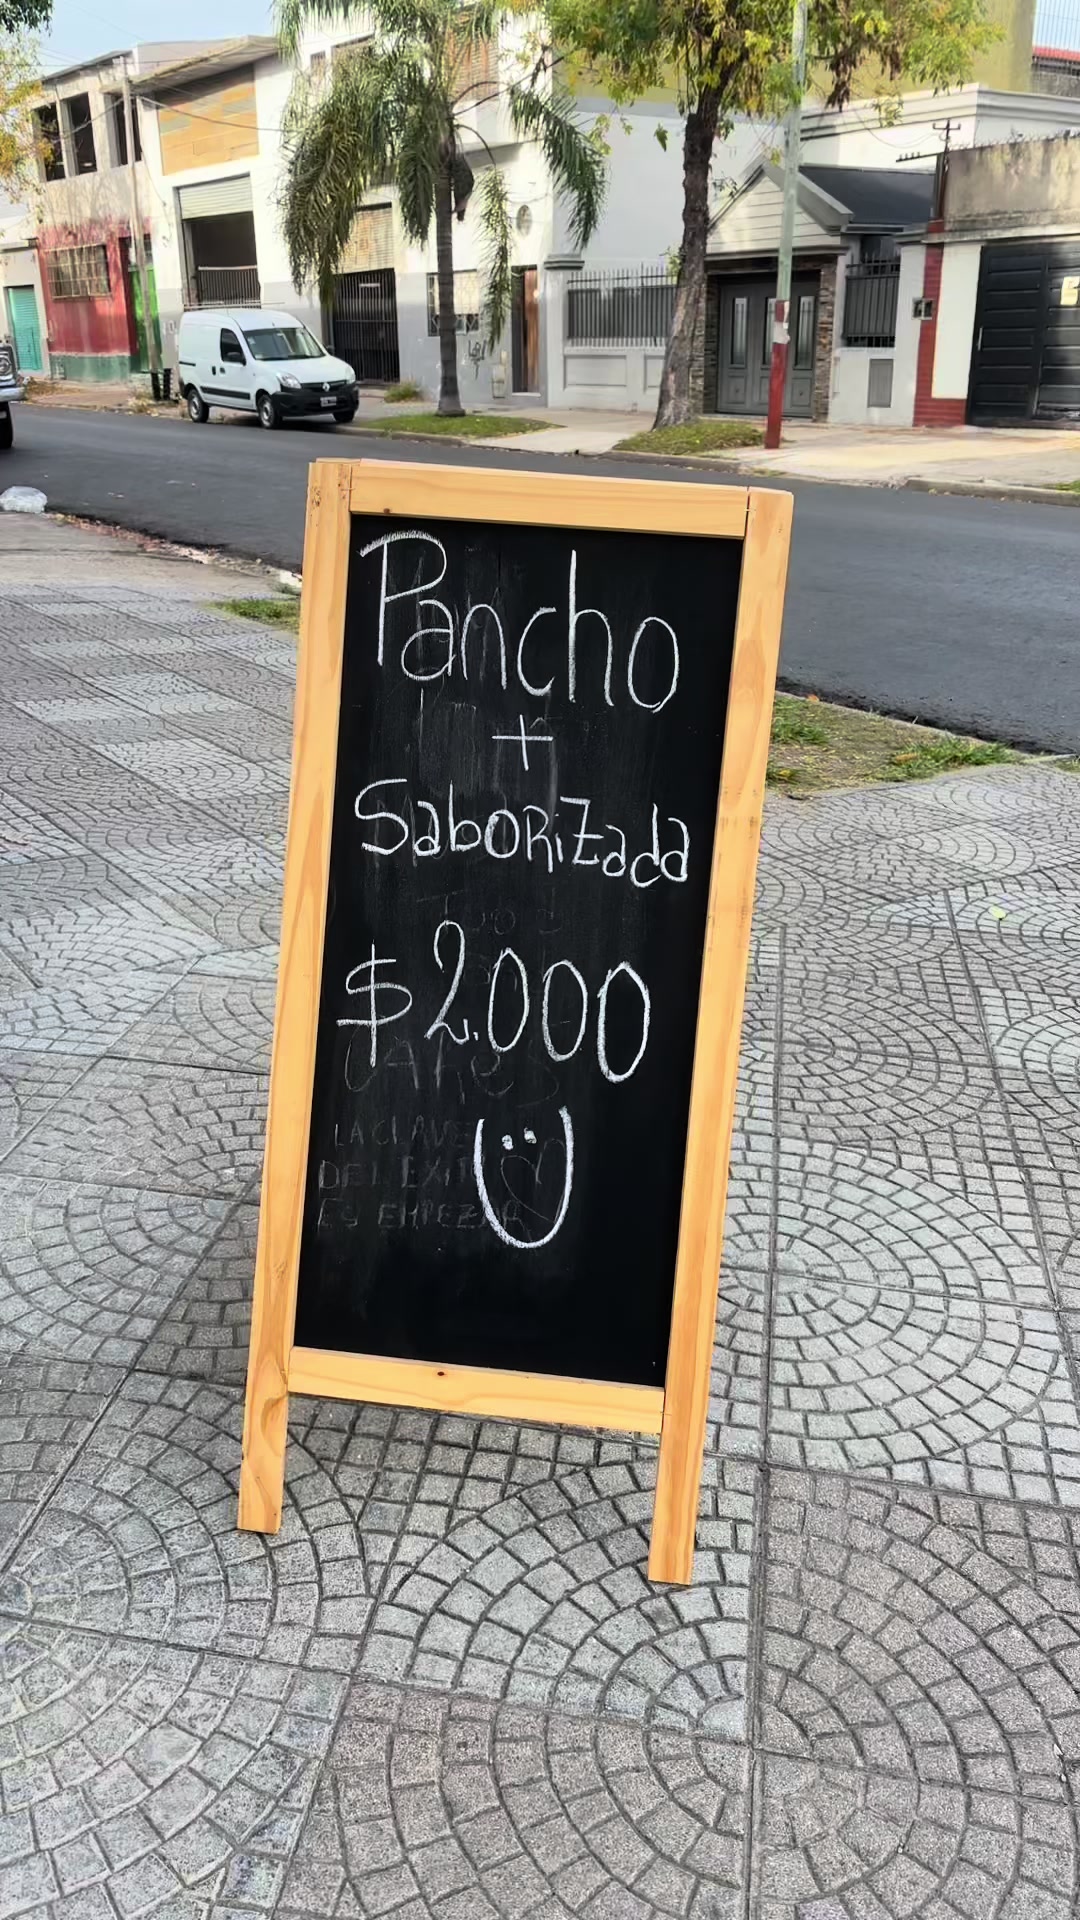 Pancho
+
Saborizada
$2.000
LA CLAVE
DEL EXITO
ES EMPEZAR